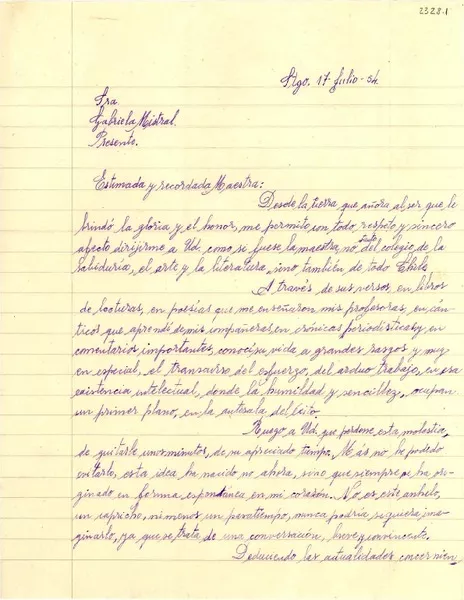 2328.1
Stgo. 17-Julio-54.
Sra.
Gabriela Mistral.
Presente.
Estimada y recordada Maestra:
Desde la tierra que añora al ser que le
brindó la gloria y el honor, me permito con todo respeto y sincero
afecto dirijirme a Ud., como si fuese la maestra, no sólo del colegio de la
Sabiduría, el arte y la literatura, sino también de todo Chile.
A través de sus versos, en libros
de lecturas, en poesías que me enseñaron mis profesoras, en cán-
ticos que aprendí de mis compañeras, en crónicas periodísticas y en
comentarios importantes, conocí su vida a grandes rasgos y muy
en especial, el transcurso del esfuerzo, del arduo trabajo, en esa
existencia intelectual, donde la humildad y sencillez, ocupan
un primer plano, en la antesala del éxito.
Ruego, a Ud. que perdone, esta molestia,
de quitarle unos minutos, de su apreciado tiempo. Más no he podido
evitarlo, esta idea, ha nacido no ahora, sino que siempre se ha ori-
ginado en forma espontánea en mi corazón. No, es este anhelo,
un capricho, ni menos un pasatiempo, nunca podría siquiera ima-
ginarlo, ya que se trata de una conversación, breve y convincente.
Deduciendo las actualidades concernien